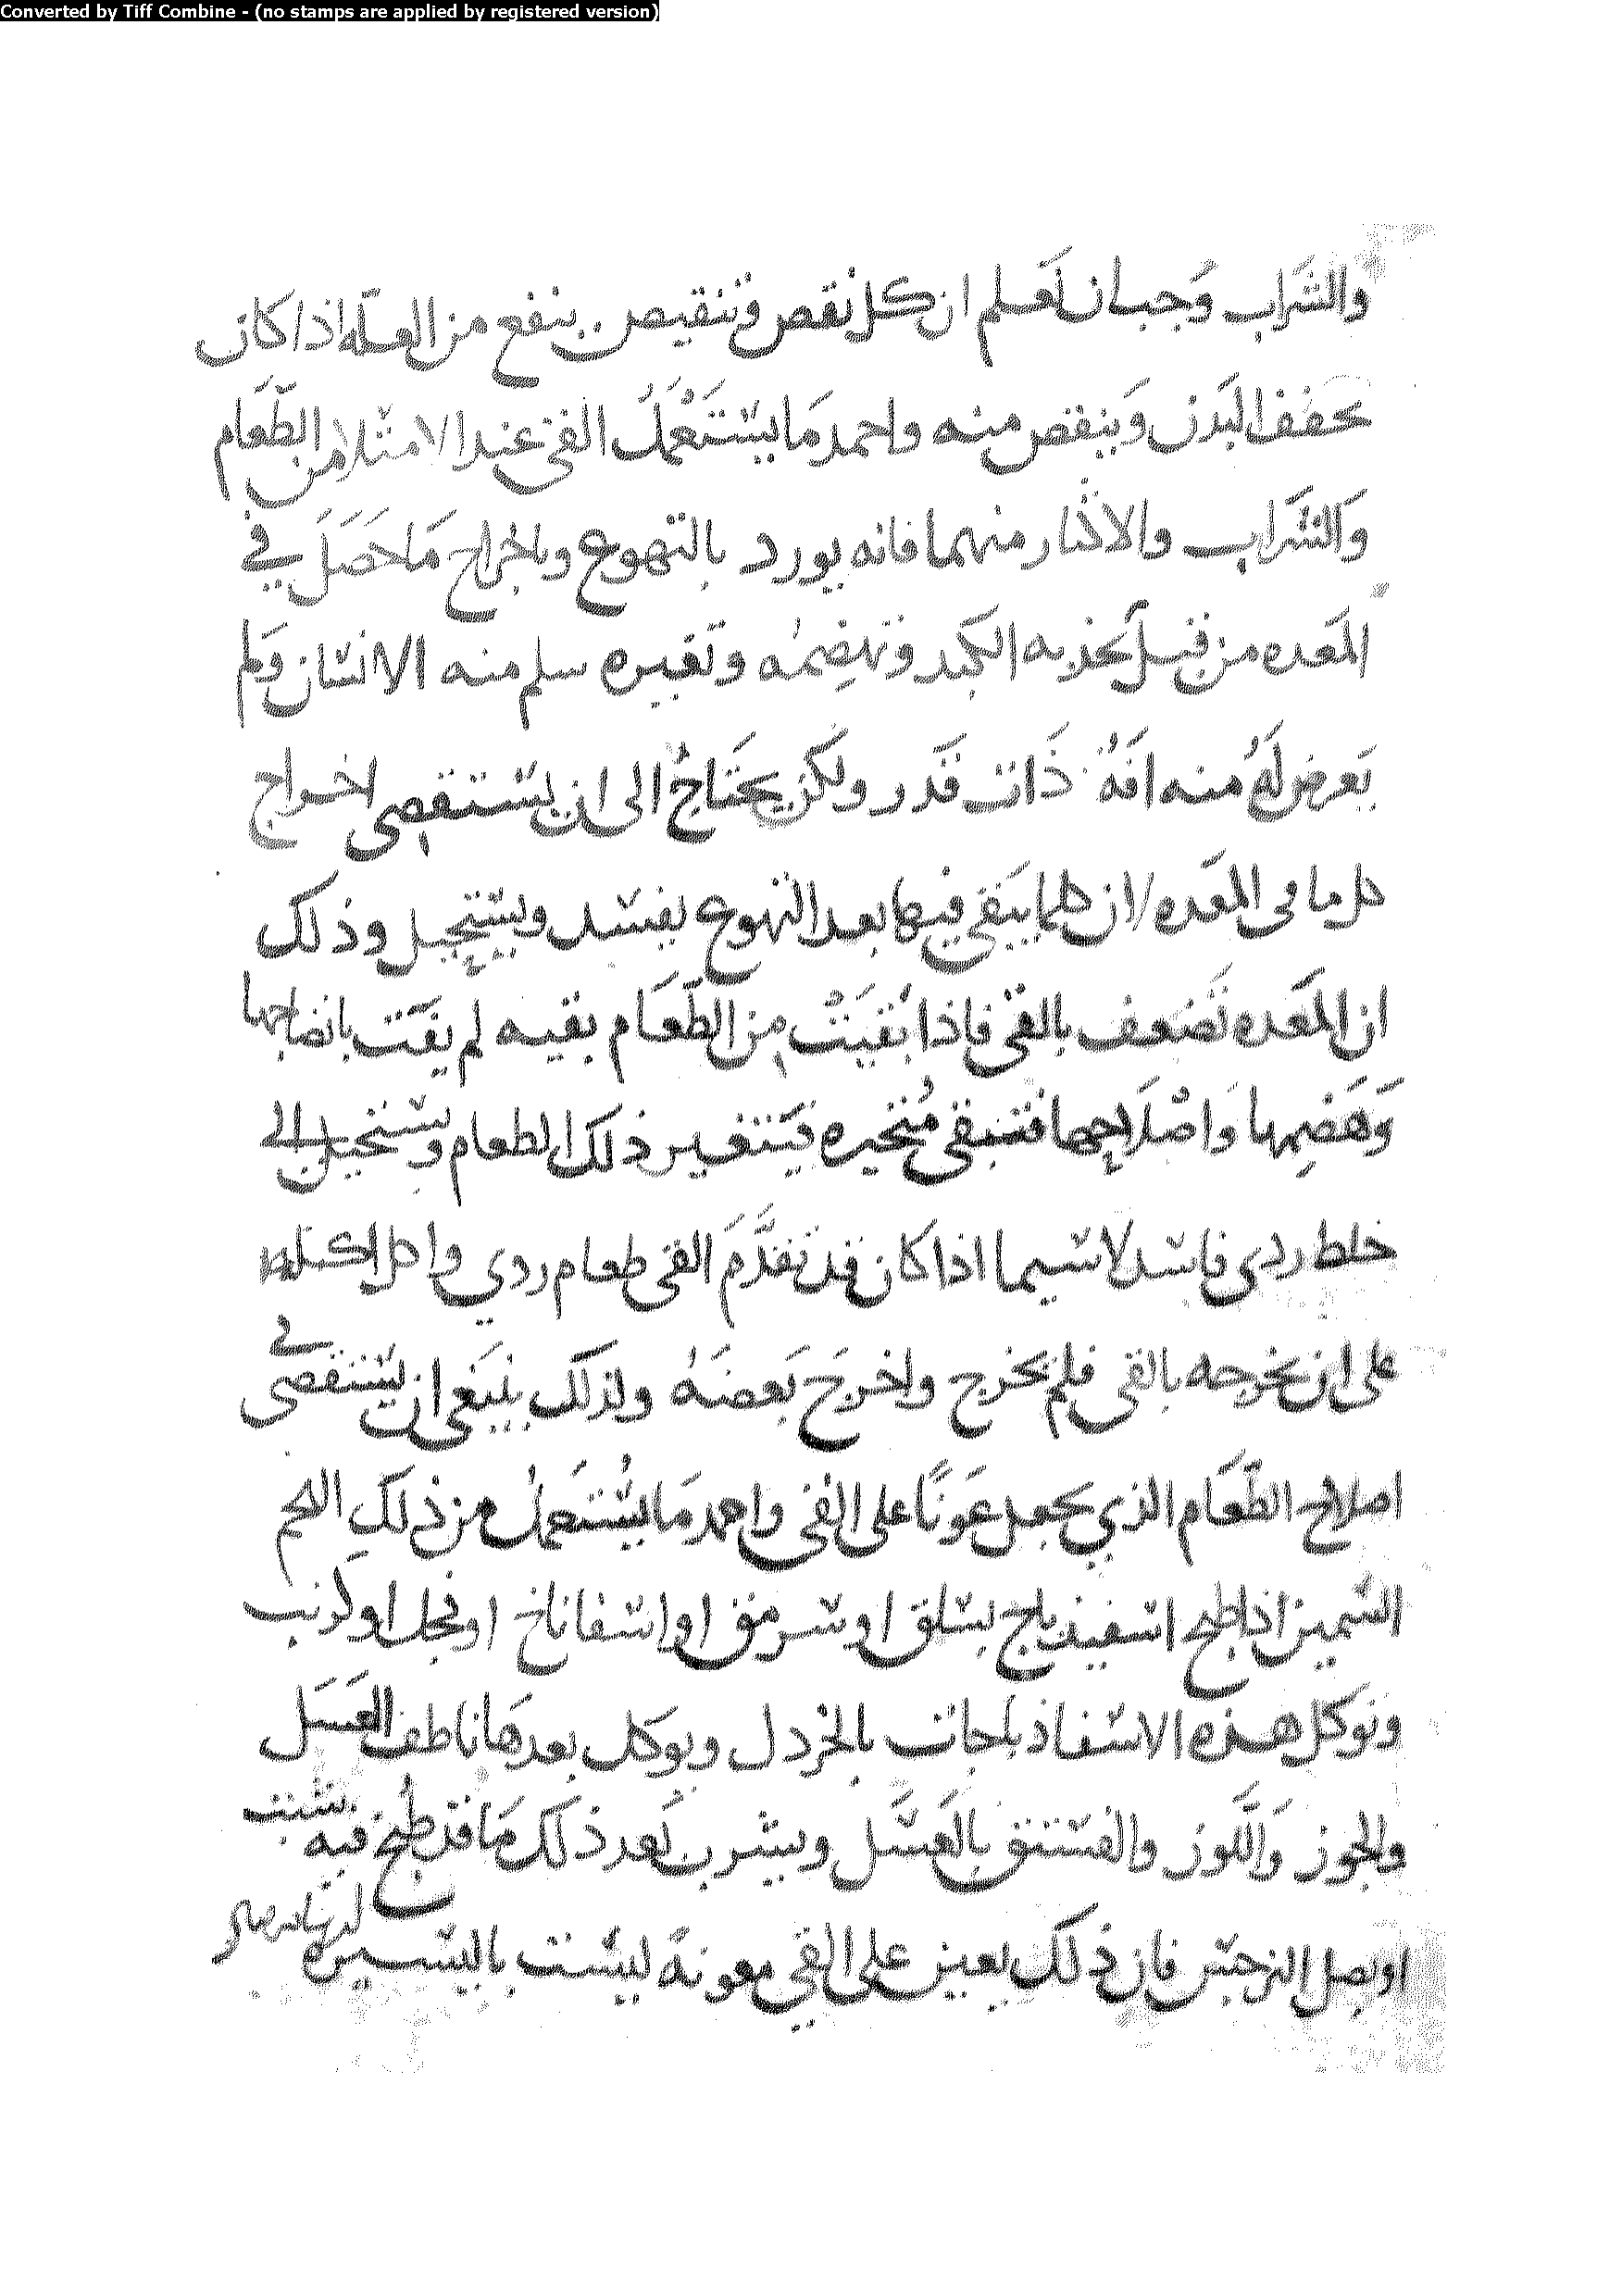 Converted by Tiff Combine - (no stamps are applied by registered version)
والشَراب وَجب ان نَعلم ان كل نقص وتنقيص ينفع من العله اذا كان
يحفف البَدن وَينقص منه واحمد مَا يستَعْمَلُ القى عند الامتلا من الطَعَام
وَالشَراب والاكثار منهما فانه يورد بالتهوع وباخراج مَا حَصَلَ في
المَعده من قبل أن يجذبه الكَبد وتهضِمُه وتَغيره سلم منه الانسان وَلم
يَعرض لَهُ منه افَهُ ذَات قَدر ولكن يحتَاجُ الى ان يستقصى اخراج
كل ما في المَعده لان كلما يَبقى فيها بعد التهوع يفسد ويستحيل وذلك
ان المَعده تَضعف بالقى فاذا بَقيَتْ من الطَعَام بقيه لم يقَت بانضاجها
وَهَضِمها وَاصْلَاحِهَا فتبقى مُتحيره فيَتغير ذلك الطعام ويستحيل الى
خلط ردي فاسد لا سيما اذا كان قد تقدَّمَ القى طعام ردي واكل
على ان يخرجه بالقى فلم يخرج واخرَجَ بَعضَهُ ولذلك ينبَغى ان يستقصى في
اصلاح الطَعَام الذي يجعل عَونًا على القى واحمد مَا يُستَعمَلُ من ذلكِ اللحم
السَمين اذا طبخ اسفيذباج بسلق او سرمق او اسفاناخ او فجل او كرنب
وتوكل هذه الاسفاذباجات بالخردل ويوكل بعدهَا ناطف العَسَل
والجوز وَاللَوز والفستق بالعَسَل ويشرب بَعد ذلك مَا قد طُبخ فيه شبت
او بصل النرجس فان ذلك يعين على القي معونة ليست باليسيره